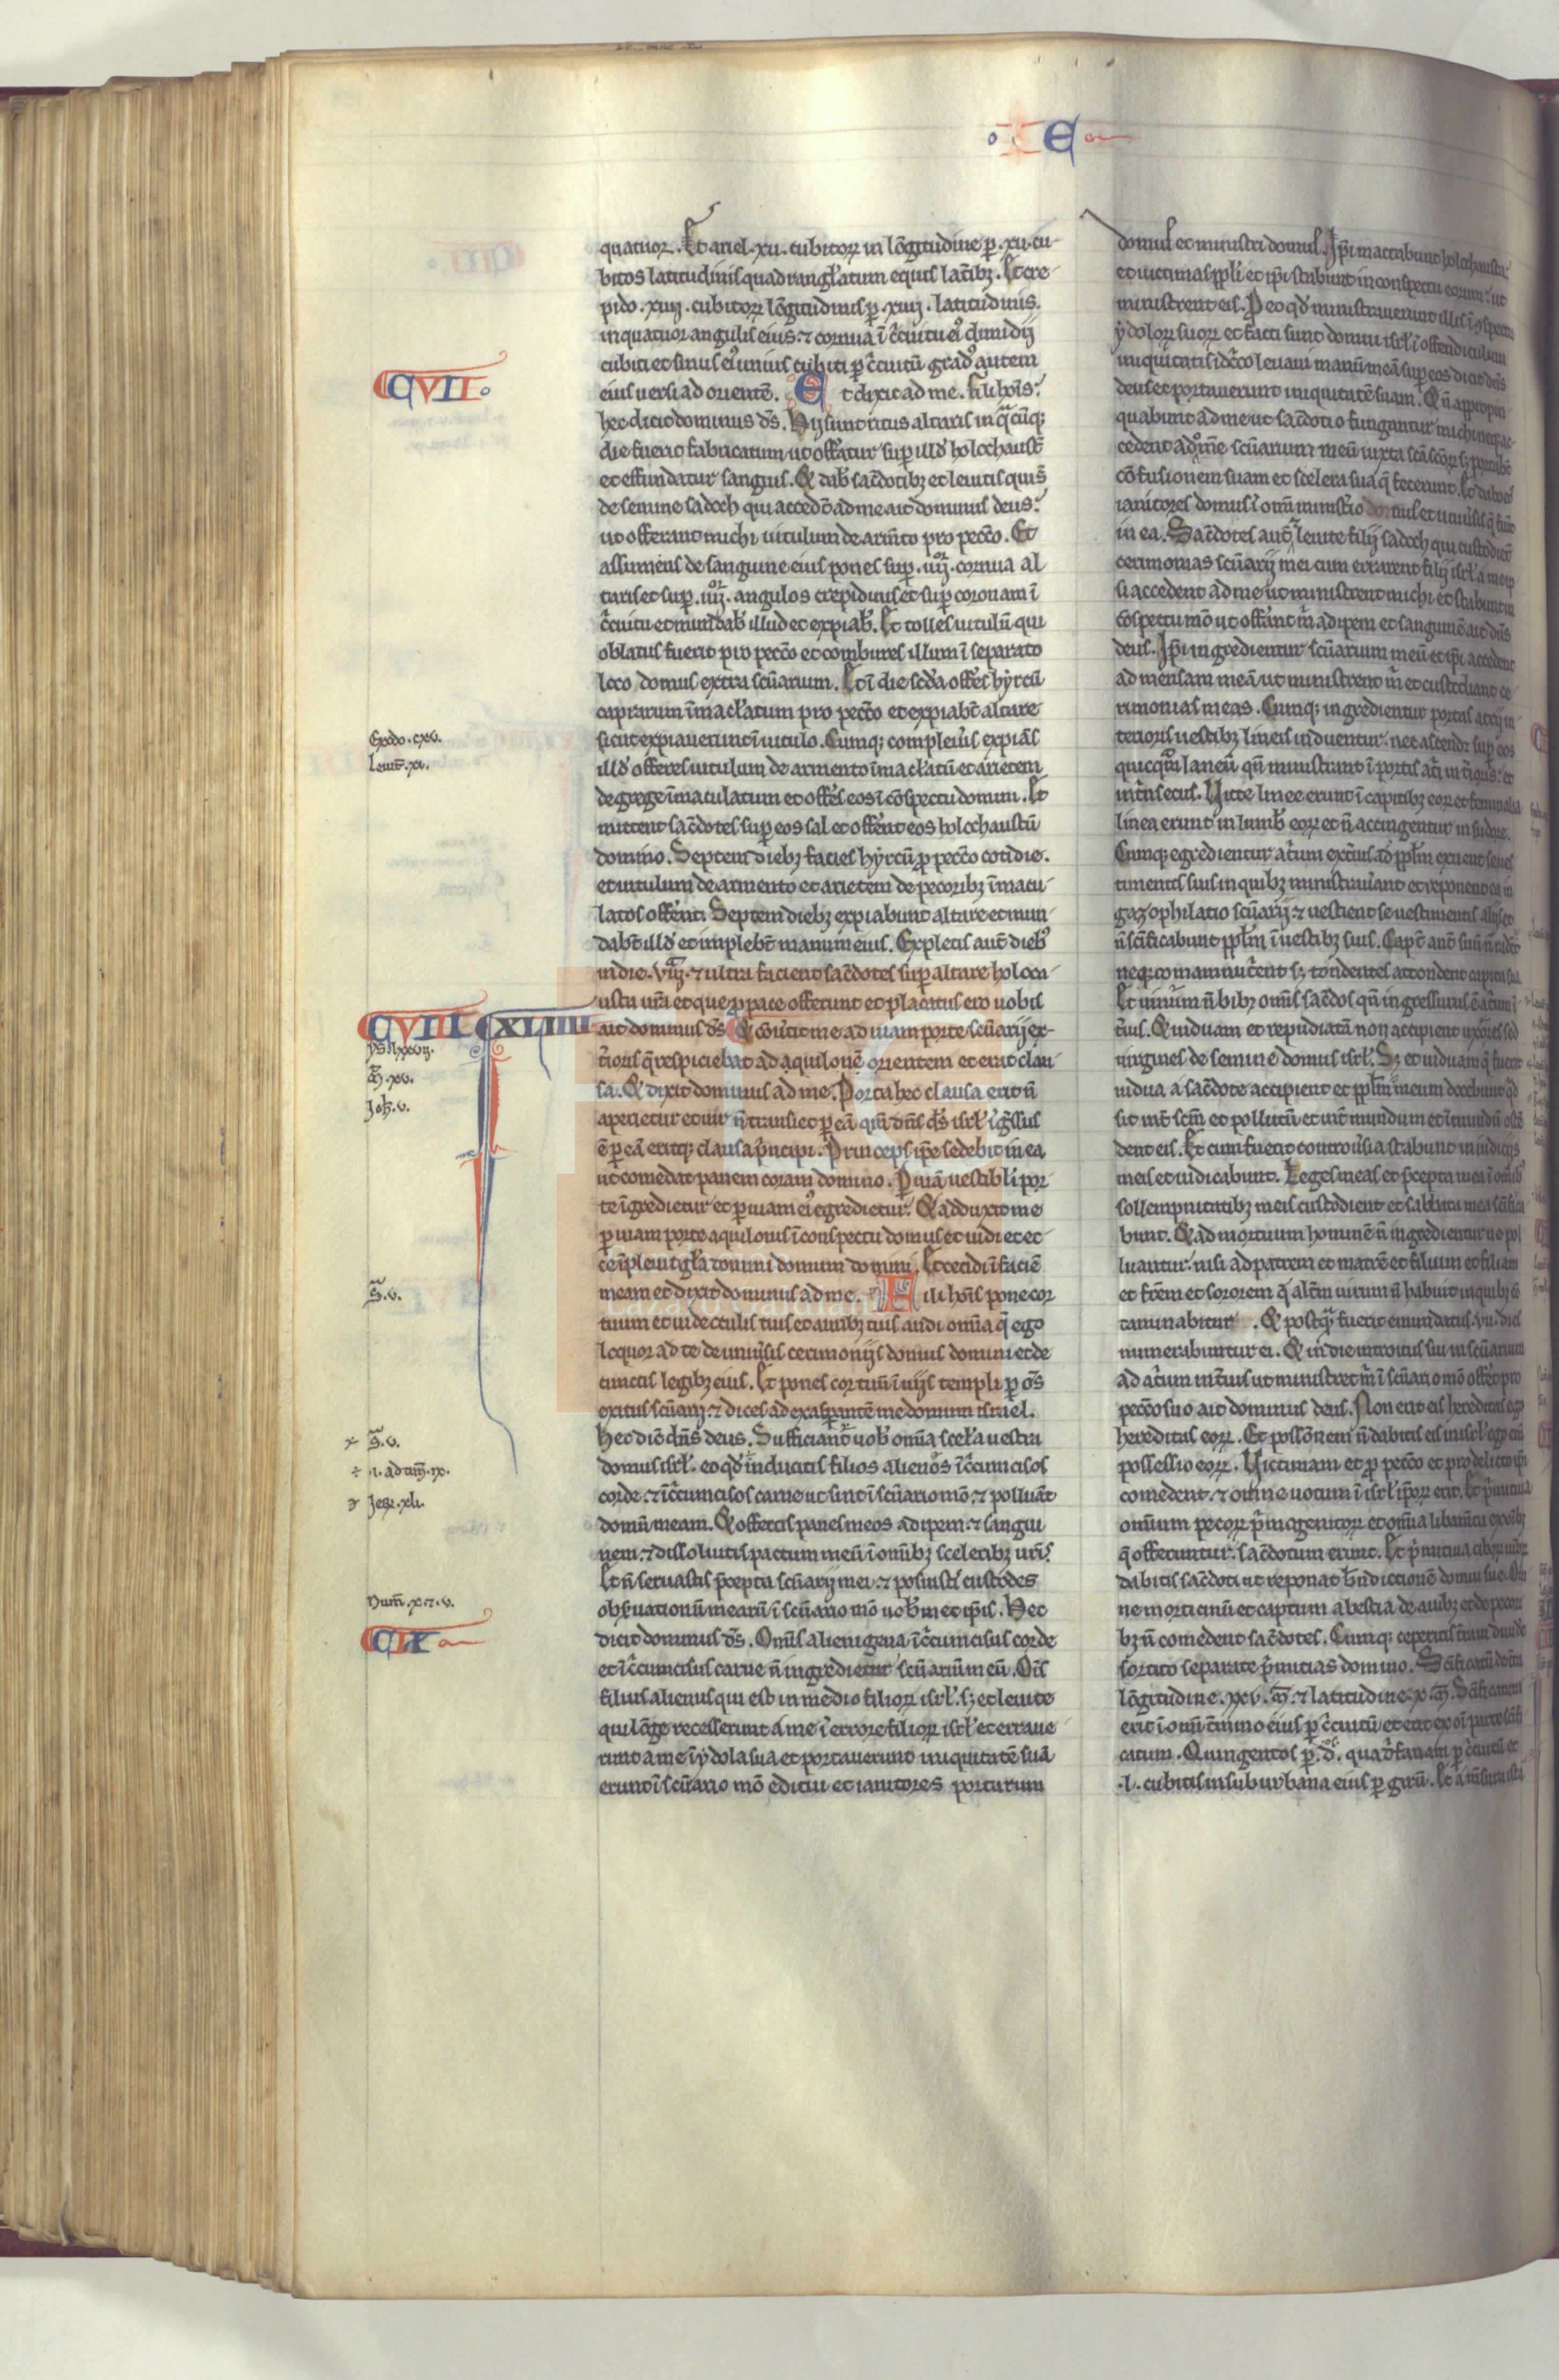 E
quatuor. Et ariel .xii. cubitoꝝ in lōgitudine ꝑ .xii. cu-
bitos latitudinis quadrangl'atum equis laterib;. Et cre
pido .xiiij. cubitoꝝ lōgitudinis ꝑ .xiiij. latitudinis.
in quatuor angulis eius. ⁊ corona ī c̄cuitu ei9 dimidij
cubiti et sinus ei9 unius cubiti ꝑ c̄cuitū grad9 autem
CVII
eius uersi ad orientē. Et dixit ad me. fili hoīs.
hec dicit dominus ds̄. Hij sunt ritus altaris in q̄cūq;
die fuerit fabricatum ut offeratur sup illd' holochaust̄
et effundatur sanguis. Et dab' sac̄dotib; et leuitis qui s̄
de semine sadoch qui accedūt ad me ait dominus deus.
ut offerant michi uitulum de armēto pro pecc̄o. Et
assumens de sanguine eius pones sup .iiij. cornua al
taris et sup .iiij. angulos crepidinis et sup coronam ī
c̄cuitu et mundab' illud et expiab'. Et tolles uitulū qui
oblatus fuerit pro pecc̄o et combures illum ī separato
loco domus extra sc̄uarium. Et ī die sc̄da offeres hyrcū
caprarum īmac'latum pro pecc̄o et expiabūt altare
Exodo .cxv.
sicut expiauerunt ī uitulo. Cumq; compleueris expiās
Leuit̄. xv.
illd' offeres uitulum de armento īmac'latū et arietem
de grege īmaculatum et offeres eos ī cōspectu domini. Et
mittent sac̄dotes sup eos sal et offerent eos holochaustū
domino. Septem dieb; facies hyrcū ꝑ pecc̄o cotidie.
et uitulum de armento et arietem de pecorib; īmacu-
latos offerent. Septem dieb; expiabunt altare et mun
dabūt illd' et implebūt manum eius. Expletis aut̄ dieb9
in die .viij. ⁊ ultra facient sac̄dotes sup altare holoca
usta ur̄a et que ꝑ pace offerunt et placatus ero uobis
CVIII XLIIII
ait dominus ds̄. Et cōuertit me ad uiam porte sc̄uarij ex-
ys. lxxvij.
terioris q̄ respiciebat ad aquilonē orientem et erat clau
.xv.
sa. Et dixit dominus ad me. Porta hec clausa erit n̄
Joh. v.
aperietur et uir n̄ transiet ꝑ eā qm̄ dn̄s ds̄ isrl' īgressus
ē ꝑ eā eritq; clausa p̄ncipi. Princeps ip̄e sedebit in ea
ut comedat panem coram domino. Per uiā uestibl'i por
te īgredietur et ꝑ uiam ei9 egredietur. Et adduxit me
ꝑ uiam porte aquilonis ī conspectu domus et uidi et ec
ce īpleuit gl'a domini domum domini. Et cecidi ī faciē
S̄. v.
meam et dixit dominus ad me. Fili hoīs pone cor
tuum et uide oculis tuis et aurib; tuis audi omīa q̄ ego
loquor ad te de uniuersis cerimonijs domus domini et de
cunctis legib; eius. Et pones cor tuum ī uijs templi ꝑ oēs
exitus sc̄uarij. ⁊ dices ad exasperantē me domum israel.
S̄. v.
Hec dic̄ dn̄s deus. Sufficiant uob' omīa scel'a uestra
.i. ad tim̄. ix.
domus isrl'. eo qd' inducitis filios alienos īc̄cumcisos
Jere. xli.
corde. ⁊ īc̄cumcisos carne ut sint ī sc̄uario mō. ⁊ polluāt
domū meam. Et offertis panes meos adipem. ⁊ sangui
nem. ⁊ dissoluitis pactum meū ī omīb; sceleribz ur̄is.
Et n̄ seruastis p̄cepta sc̄uarij mei. ⁊ posuisti custodes
Num̄. x. ⁊ v.
obseruationū mearū ī sc̄uario mō uob' met ip̄is. Hec
CIX
dicit dominus ds̄. Omīs alienigena īc̄cumcisus corde
et īc̄cumcisus carne n̄ ingredietur sc̄uariū meū. Oīs
filius alienus qui est in medio filioꝝ isrl'. s; et leuite
qui lōge recesserunt a me ī errore filioꝝ isrl' et erraue
runt a me ī ydola sua et portauerunt iniquitatē suā
erunt ī sc̄uario mō editui et ianitores portarum
domus et ministri domus. Ip̄i mactabunt holochausta
et uictimas ppl'i et ip̄i stabunt in conspectu eorum. ut
ministrent eis. Pro eo qd' ministrauerunt illis ī ꝯspectu
ydoloꝝ suoꝝ et facti sunt domui isrl' ī offendiculum
iniquitatis idc̄co leuaui manū meā sup eos dicit dn̄s
deus et portauerunt iniquitatē suam. Et n̄ appropin
quabunt ad me ut sac̄dotio fungantur michi neq; ac-
cedent ad om̄e sc̄uarium meū iuxta sc̄a sc̄oꝝ s; portabūt
cōfusionem suam et scelera sua q̄ fecerunt. Et dabo eos
ianitores domus ī omī ministerio domus et uniuersis q̄ fiunt
in ea. Sac̄dotes aut̄ leuite filij sadoch qui custodierūt
cerimonias sc̄uarij mei cum errarent filij isrl' a me ip̄i
accedent ad me ut ministrent michi et stabunt in
cōspectu mō ut offerant m̄ adipem et sanguinē ait dn̄s
deus. Ip̄i ingredientur sc̄uarium meū et ip̄i accedent
ad mensam meā ut ministrent m̄ et custodiant ce-
rimonias meas. Cumq; ingredientur portas atrij in-
terioris uestib; lineis induentur. nec ascendet sup eos
quicq̄m laneū qn̄ ministrant ī portis atrij interioris. et
int̄nsecus. Uitte linee erunt ī capitib; eoꝝ et feminalia
linea erunt in lumb' eoꝝ et n̄ accingentur in sudore.
Cumq; egredientur atrium exterius ad ppl'm exuent se ues
timentis suis in quib; ministrauerant et reponent ea in
gazophilatio sc̄uarij. ⁊ uestient se uestimentis alijs et
n̄ sc̄ificabunt ppl'm ī uestib; suis. Caput aut̄ suū n̄ radēt
neq; comam nutrient s; tondentes attondent capita sua
Et uinum n̄ bibz omīs sac̄dos qn̄ ingressurus ē atrium ī
terius. Et uiduam et repudiatā non accipient uxores sed
uirgines de semine domus isrl'. S; et uiduam q̄ fuerit
uidua a sac̄dote accipient et ppl'm meum docebunt qd
sit int̄ sc̄m et pollutū et int̄ mundum et īmundū ostē
dent eis. Et cum fuerit controuersia stabunt in iudicijs
meis et iudicabunt. Leges meas et p̄cepta mea ī omīb;
sollempnitatib; meis custodient et sabbata mea sc̄ifica
bunt. Et ad mortuum hominē n̄ ingredientur ne pol
luantur. nisi ad patrem et matrē et filium et filiam
et fr̄em et sororem q̄ alt̄m uirum n̄ habuit in quib; cō
taminabitur. Et postq̄ fuerit emundatus .vii. dies
numerabuntur ei. Et in die introitus sui in sc̄uarium
ad atrium interius ut ministret m̄ ī sc̄uario mō offeret pro
pecc̄o suo ait dominus deus. Non erit eis hereditas ego
hereditas eoꝝ. Et possōnem n̄ dabitis eis in isrl' ego enī
possessio eoꝝ. Uictimam et ꝑ pecc̄o et pro delicto ip̄i
comedent. ⁊ omne uotum ī isrl' ip̄oꝝ erit. Et p̄mitiua
omīum pecoꝝ p̄mogenitoꝝ et omīa libamīta ex omīb;
q̄ offeruntur. sac̄dotum erunt. Et p̄mitiua ciboꝝ ur̄oꝝ
dabitis sac̄doti ut reponat bn̄dictionē domui sue. Om
ne morticinū et captum a bestia de auib; et de pecori
b; n̄ comedent sac̄dotes. Cumq; ceperitis t̄ram diuide
sortito separate p̄mitias domino. Sc̄ificatū de t̄ra
lōgitudine .xxv. m̄. ⁊ latitudine .x. m̄. Sc̄ificatum
erit ī omī t̄mino eius ꝑ c̄cuitū et erit ex oī parte sc̄ifi
catum. Quingentos ꝑ .d. quadrifariam ꝑ c̄cuitū et
.l. cubitis in suburbana eius ꝑ girū. Et a mēsura ista
Lázaro Galdiano